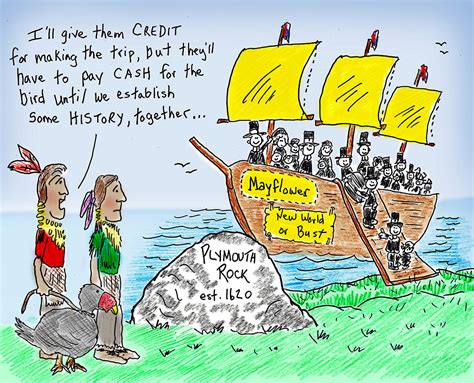 I'll give them CREDIT
for making the trip, but they'll
have to pay CASH for the
bird until we establish
some HISTORY, together...
Mayflower
New World
or Bust
PLYMOUTH
ROCK
est. 1620